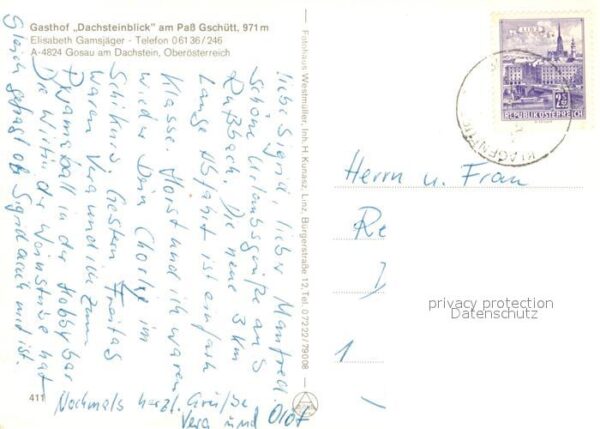 Gasthof „Dachsteinblick" am Paß Gschütt, 971 m
Elisabeth Gamsjäger - Telefon 0 61 36 / 246
A-4824 Gosau am Dachstein, Oberösterreich
liebe Sigrid, lieber Manfred.
Schöne Urlaubsgrüße aus
Rußbach. Die neue 3 km
Lange Abfahrt ist einfach
Klasse. Horst und ich waren
wieder Dein Chorly im
Schikurs. Gestern, Freitag
waren Vera und ich zum
Pyjamaball in der Hobbybar
Die Wirtin der Weinstube hat
gleich gefragt ob Sigrid auch mit ist.
Nochmals herzl. Grüße
Vera und Olaf
411
Fotohaus Westmüller, Inh. H. Kunasz, Linz, Bürgerstraße 12, Tel. 0 72 22 / 79008
LINZ
2.50
REPUBLIK ÖSTERREICH
Herrn u. Frau
Re
1
privacy protection
Datenschutz